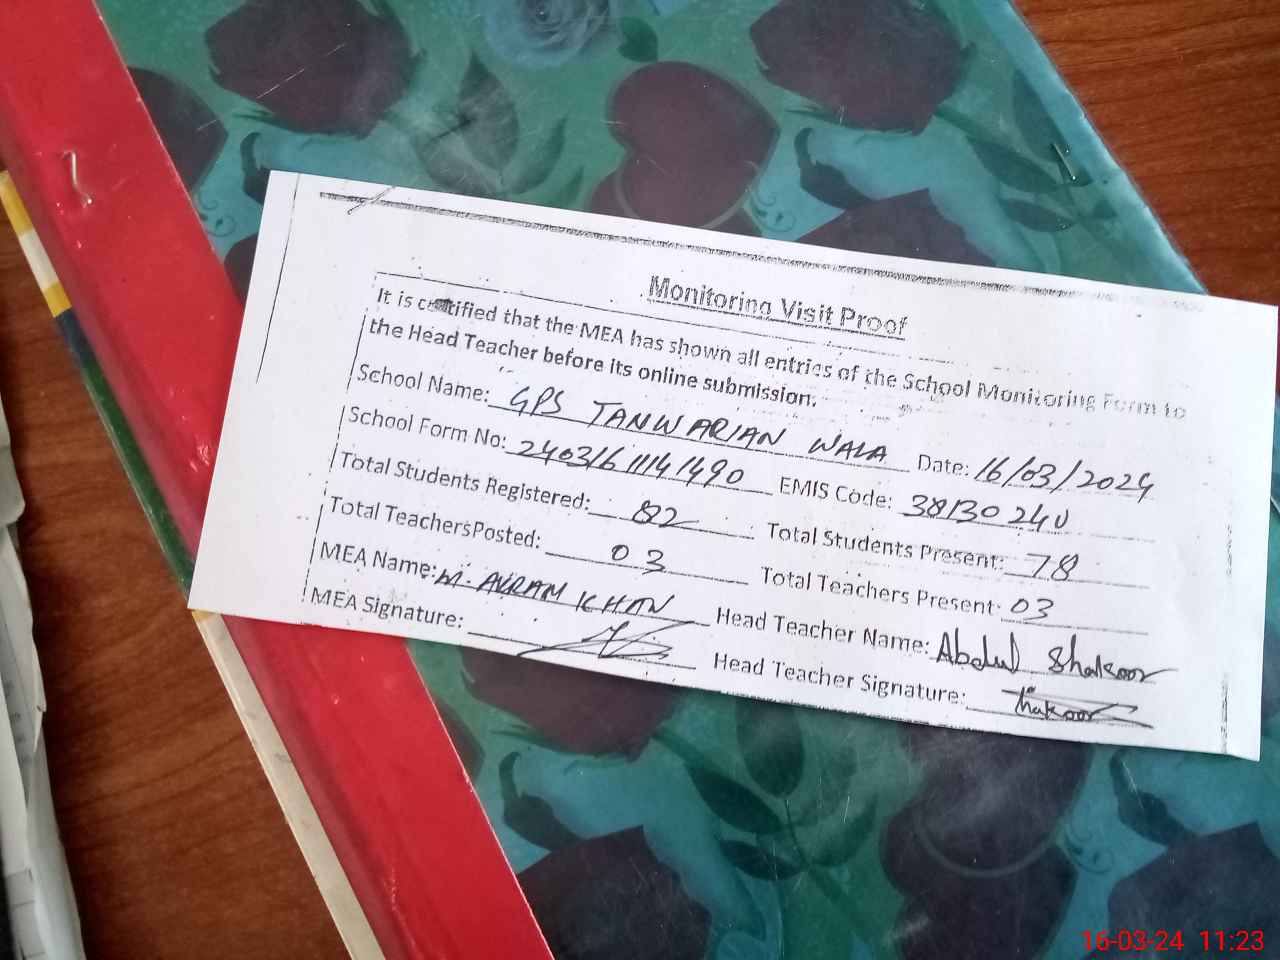 Monitoring Visit Proof
It is certified that the MEA has shown all entries of the School Monitoring Form to
the Head Teacher before its online submission.
School Name: GPS TANWARIAN WALA Date: 16/03/2024
School Form No: 24031611141490 EMIS Code: 38130240
Total Students Registered: 82 Total Students Present: 78
Total TeachersPosted: 03 Total Teachers Present: 03
MEA Name: M. AKRAM KHAN Head Teacher Name: Abdul Shakoor
MEA Signature: Head Teacher Signature: Shakoor
16-03-24 11:23